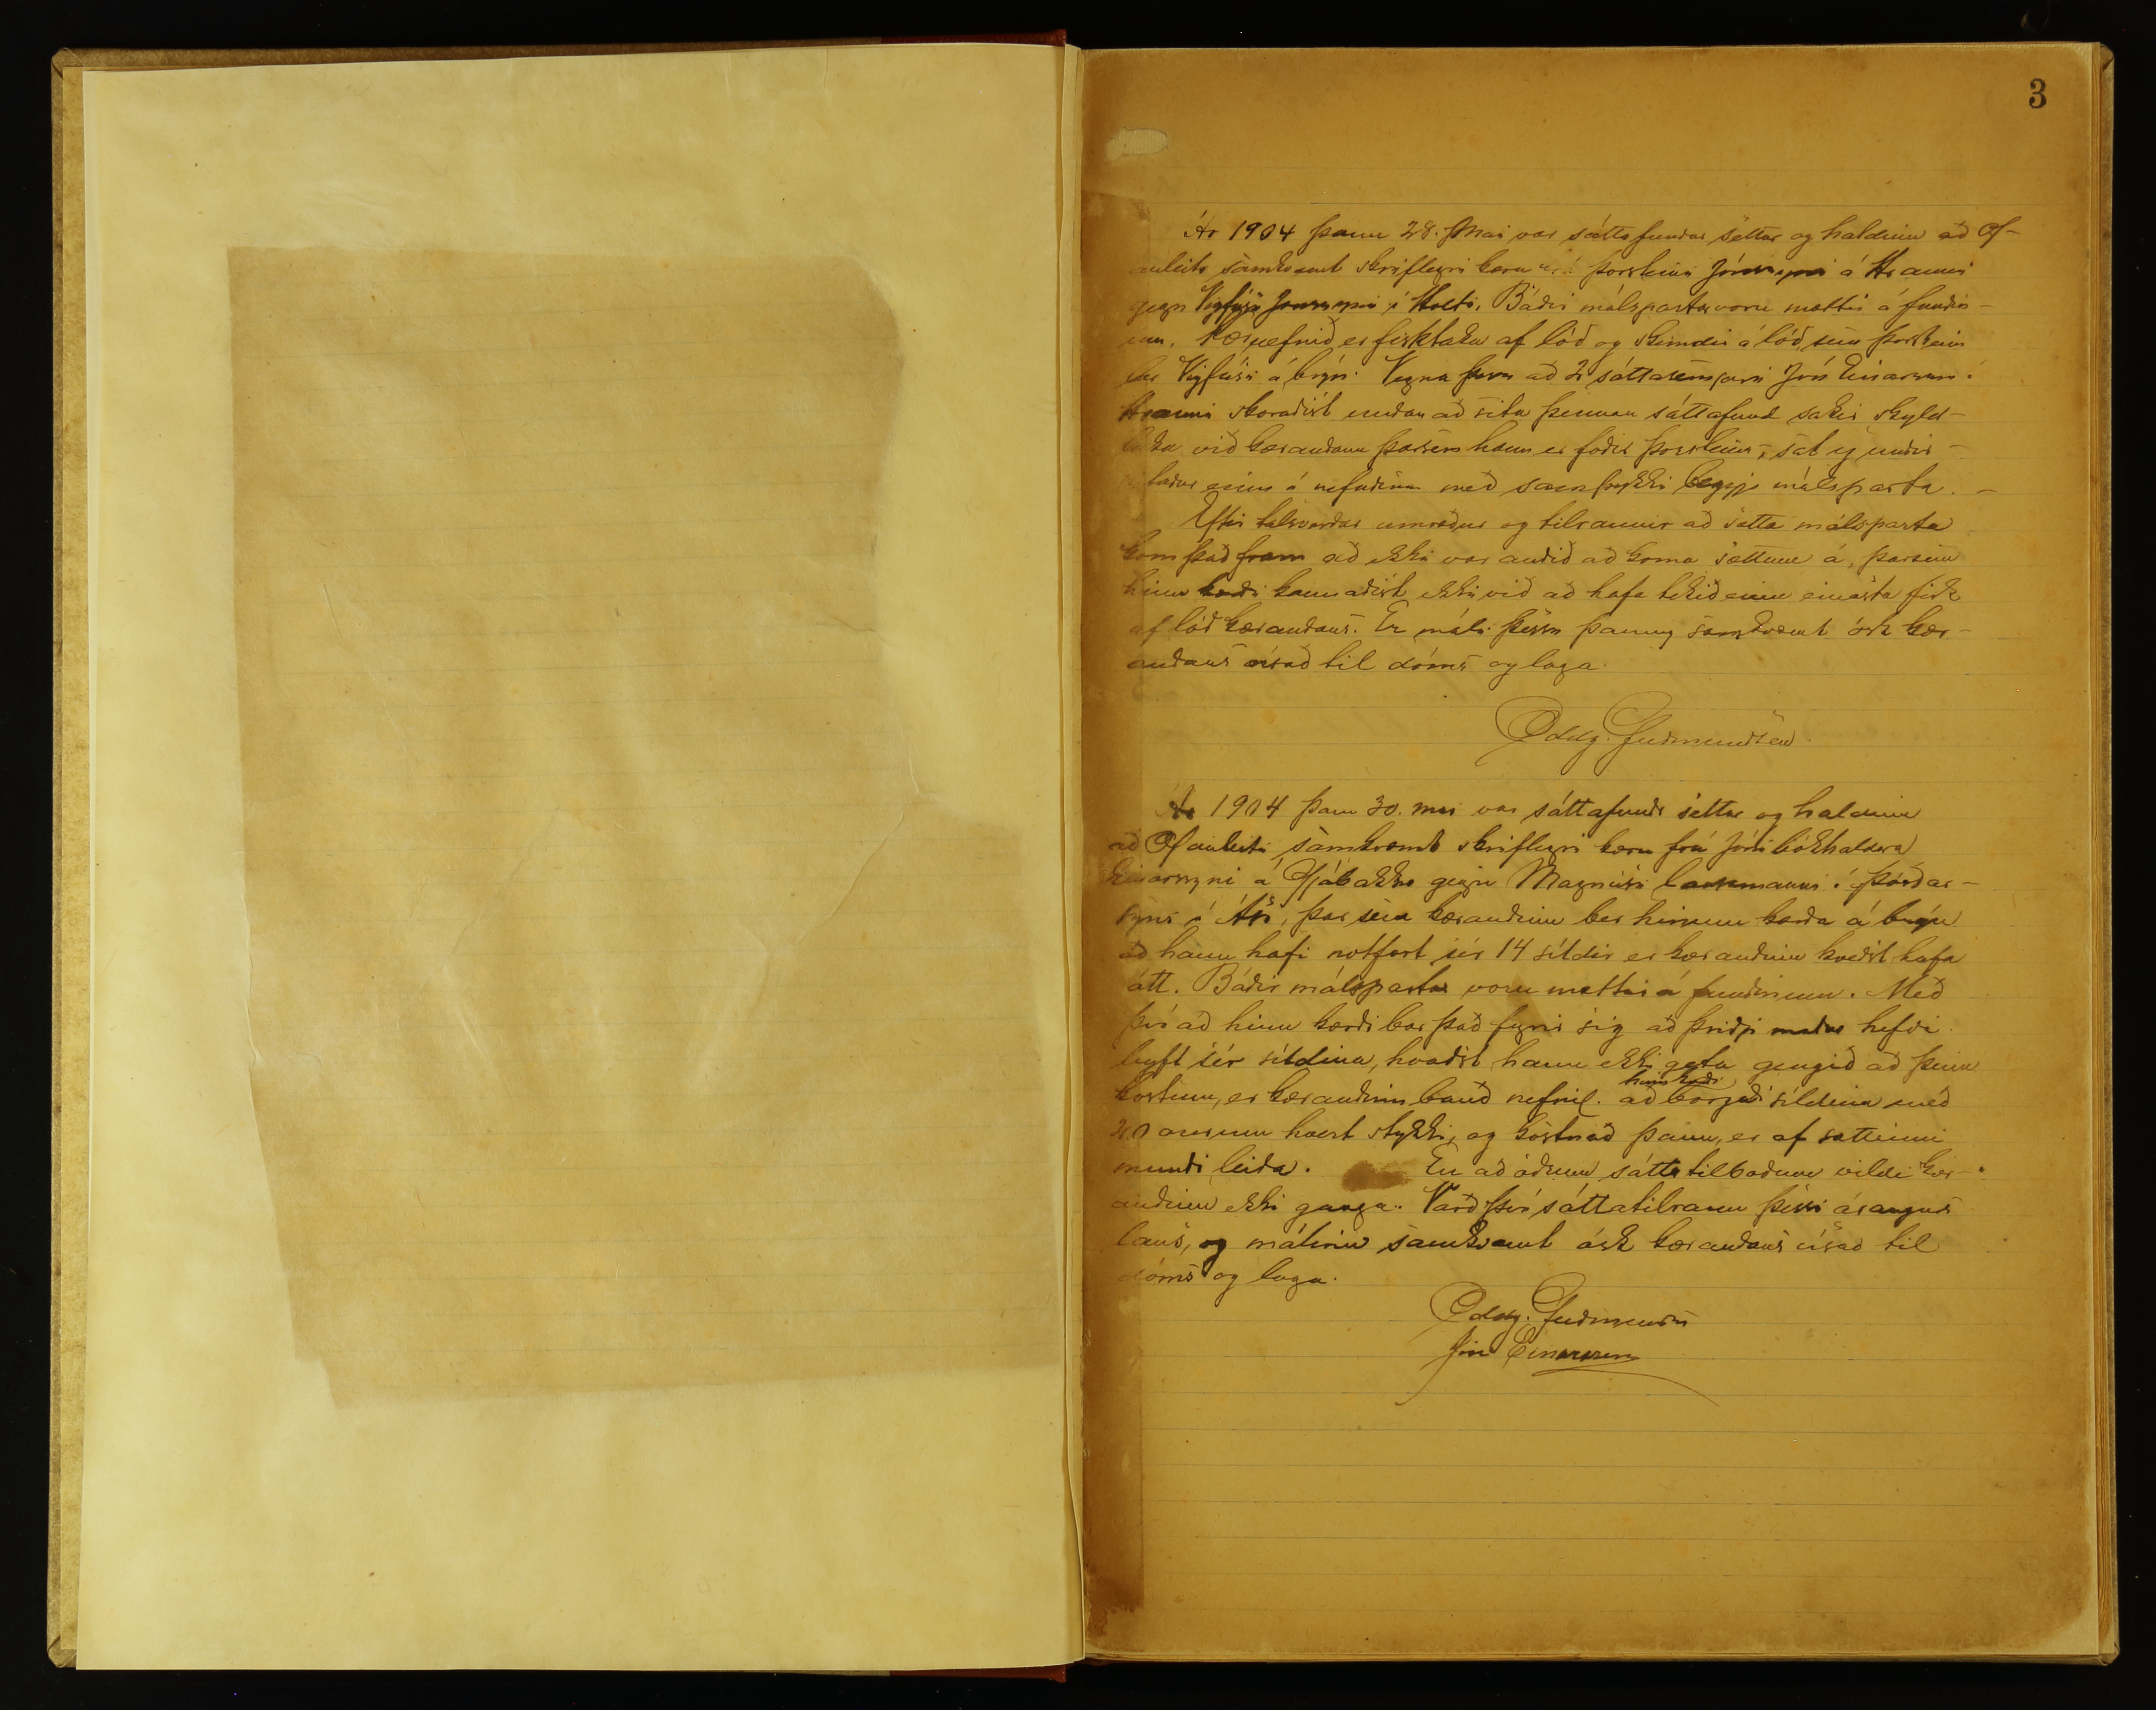 3
Ár 1904 þann 28. Mai var sáttafundur settur og haldinn að Of-
anleiti samkvæmt skriflegri kæru frá Þorsteini Jónssyni á Hrauni
gegn Vigfúsi Jónssyni í Holti. Báðir málspartar voru mættir á fundin-
um. Kæruefnið er fisktaka af lóð og skemdir á lóð, sem Þorsteinn
ber Vigfúsi á brýn. Vegna þess að 2 sáttasemjari Jón Einarsson á
Hrauni skoraðist undan að sitja þennan sáttafund sakir skyld-
leika við kærandann þarsem hann er faðir Þorsteins, sat eg undir-
ritaður einn í nefndinni með samþykki beggja málsparta. –
Eftir talsverðar umræður og tilraunir að sætta málsparta
kom það fram að ekki var auðið að koma sættum á, þarsem
hinn kærði kannaðist ekki við að hafa tekið einn einasta fisk
af lóð kærandans. Er máli þessu þannig samkvæmt ósk kær-
andans vísað til dóms og laga.
Oddg. Guðmundsen
Ár 1904 þann 30. mai var sáttafundr settur og haldinn
að Ofanleiti samkvæmt skriflegri kæru frá Jóni bókhaldara
Einarssyni á Gjábakka gegn Magnúsi lausamanni í Þórðar-
syni í Ási, þar sem kærandinn ber hinum kærða á brýn
að hann hafi notfært sér 14 síldir er kærandinn kveðst hafa
átt. Báðir málspartar voru mættir á fundinum. Með
því að hinn kærði bar það fyrir sig að þriðji maður hefði
leyft sér síldina, kvaðst hann ekki geta gengið að þeim
hinn kærði
kostum, er kærandinn bauð nefnil. að borgaði síldina með
20 aurum hvert stykki, og kostnað þann, er af sættinni
mundi leiða. En að öðrum sáttatilboðum vildi kær-
andinn ekki ganga. Varð því sáttatilraun þessi árangurs
laus, og málinu samkvæmt ósk kærandans vísað til
dóms og laga.
Oddg. Guðmundsen
Jón Einarsson